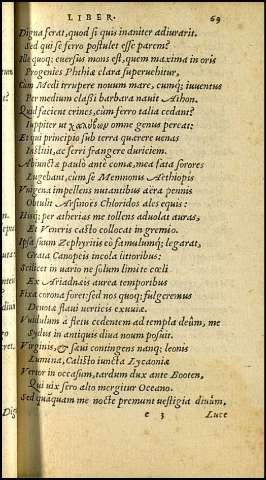 LIBER. 69
Digna ferat, quod si quis inaniter adiurarit.
Sed qui se ferro postulet esse parem?
Ille quoq; euersus mons est, quem maxima in oris
Progenies Phthiæ clara superuehitur,
Cum Medi irrupere nouum mare, cumq; iuuentus
Per medium classi barbara nauit Athon.
Quid facient crines, cum ferro talia cedant?
Iuppiter ut χαλύβων omne genus pereat:
Et qui principio sub terra quærere uenas
Institit, ac ferri frangere duriciem.
Abiunctæ paulò ante comæ, mea fata sorores
Lugebant, cum se Memnonis Aethiopis
Vnigena impellens nutantibus aëra pennis
Obtulit Arsinoës Chloridos ales equus:
Hisq; per ætherias me tollens aduolat auras,
Et Veneris casto collocat in gremio.
Ipsa suum Zephyritis eò famulumq; legarat,
Grata Canopeis incola littoribus:
Scilicet in uario ne solum limite cœli
Ex Ariadnæis aurea temporibus
Fixa corona foret: sed nos quoq; fulgeremus
Deuotæ flaui uerticis exuuiæ.
Vuidulum à fletu cedentem ad templa deûm, me
Sydus in antiquis diua nouum posuit.
Virginis, & sæui contingens nanq; leonis
Lumina, Calisto iuncta Lycaoniæ
Vertor in occasum, tardum dux ante Booten,
Qui uix sero alto mergitur Oceano.
Sed quãquam me nocte premunt uestigia diuûm,
e 3 Luce